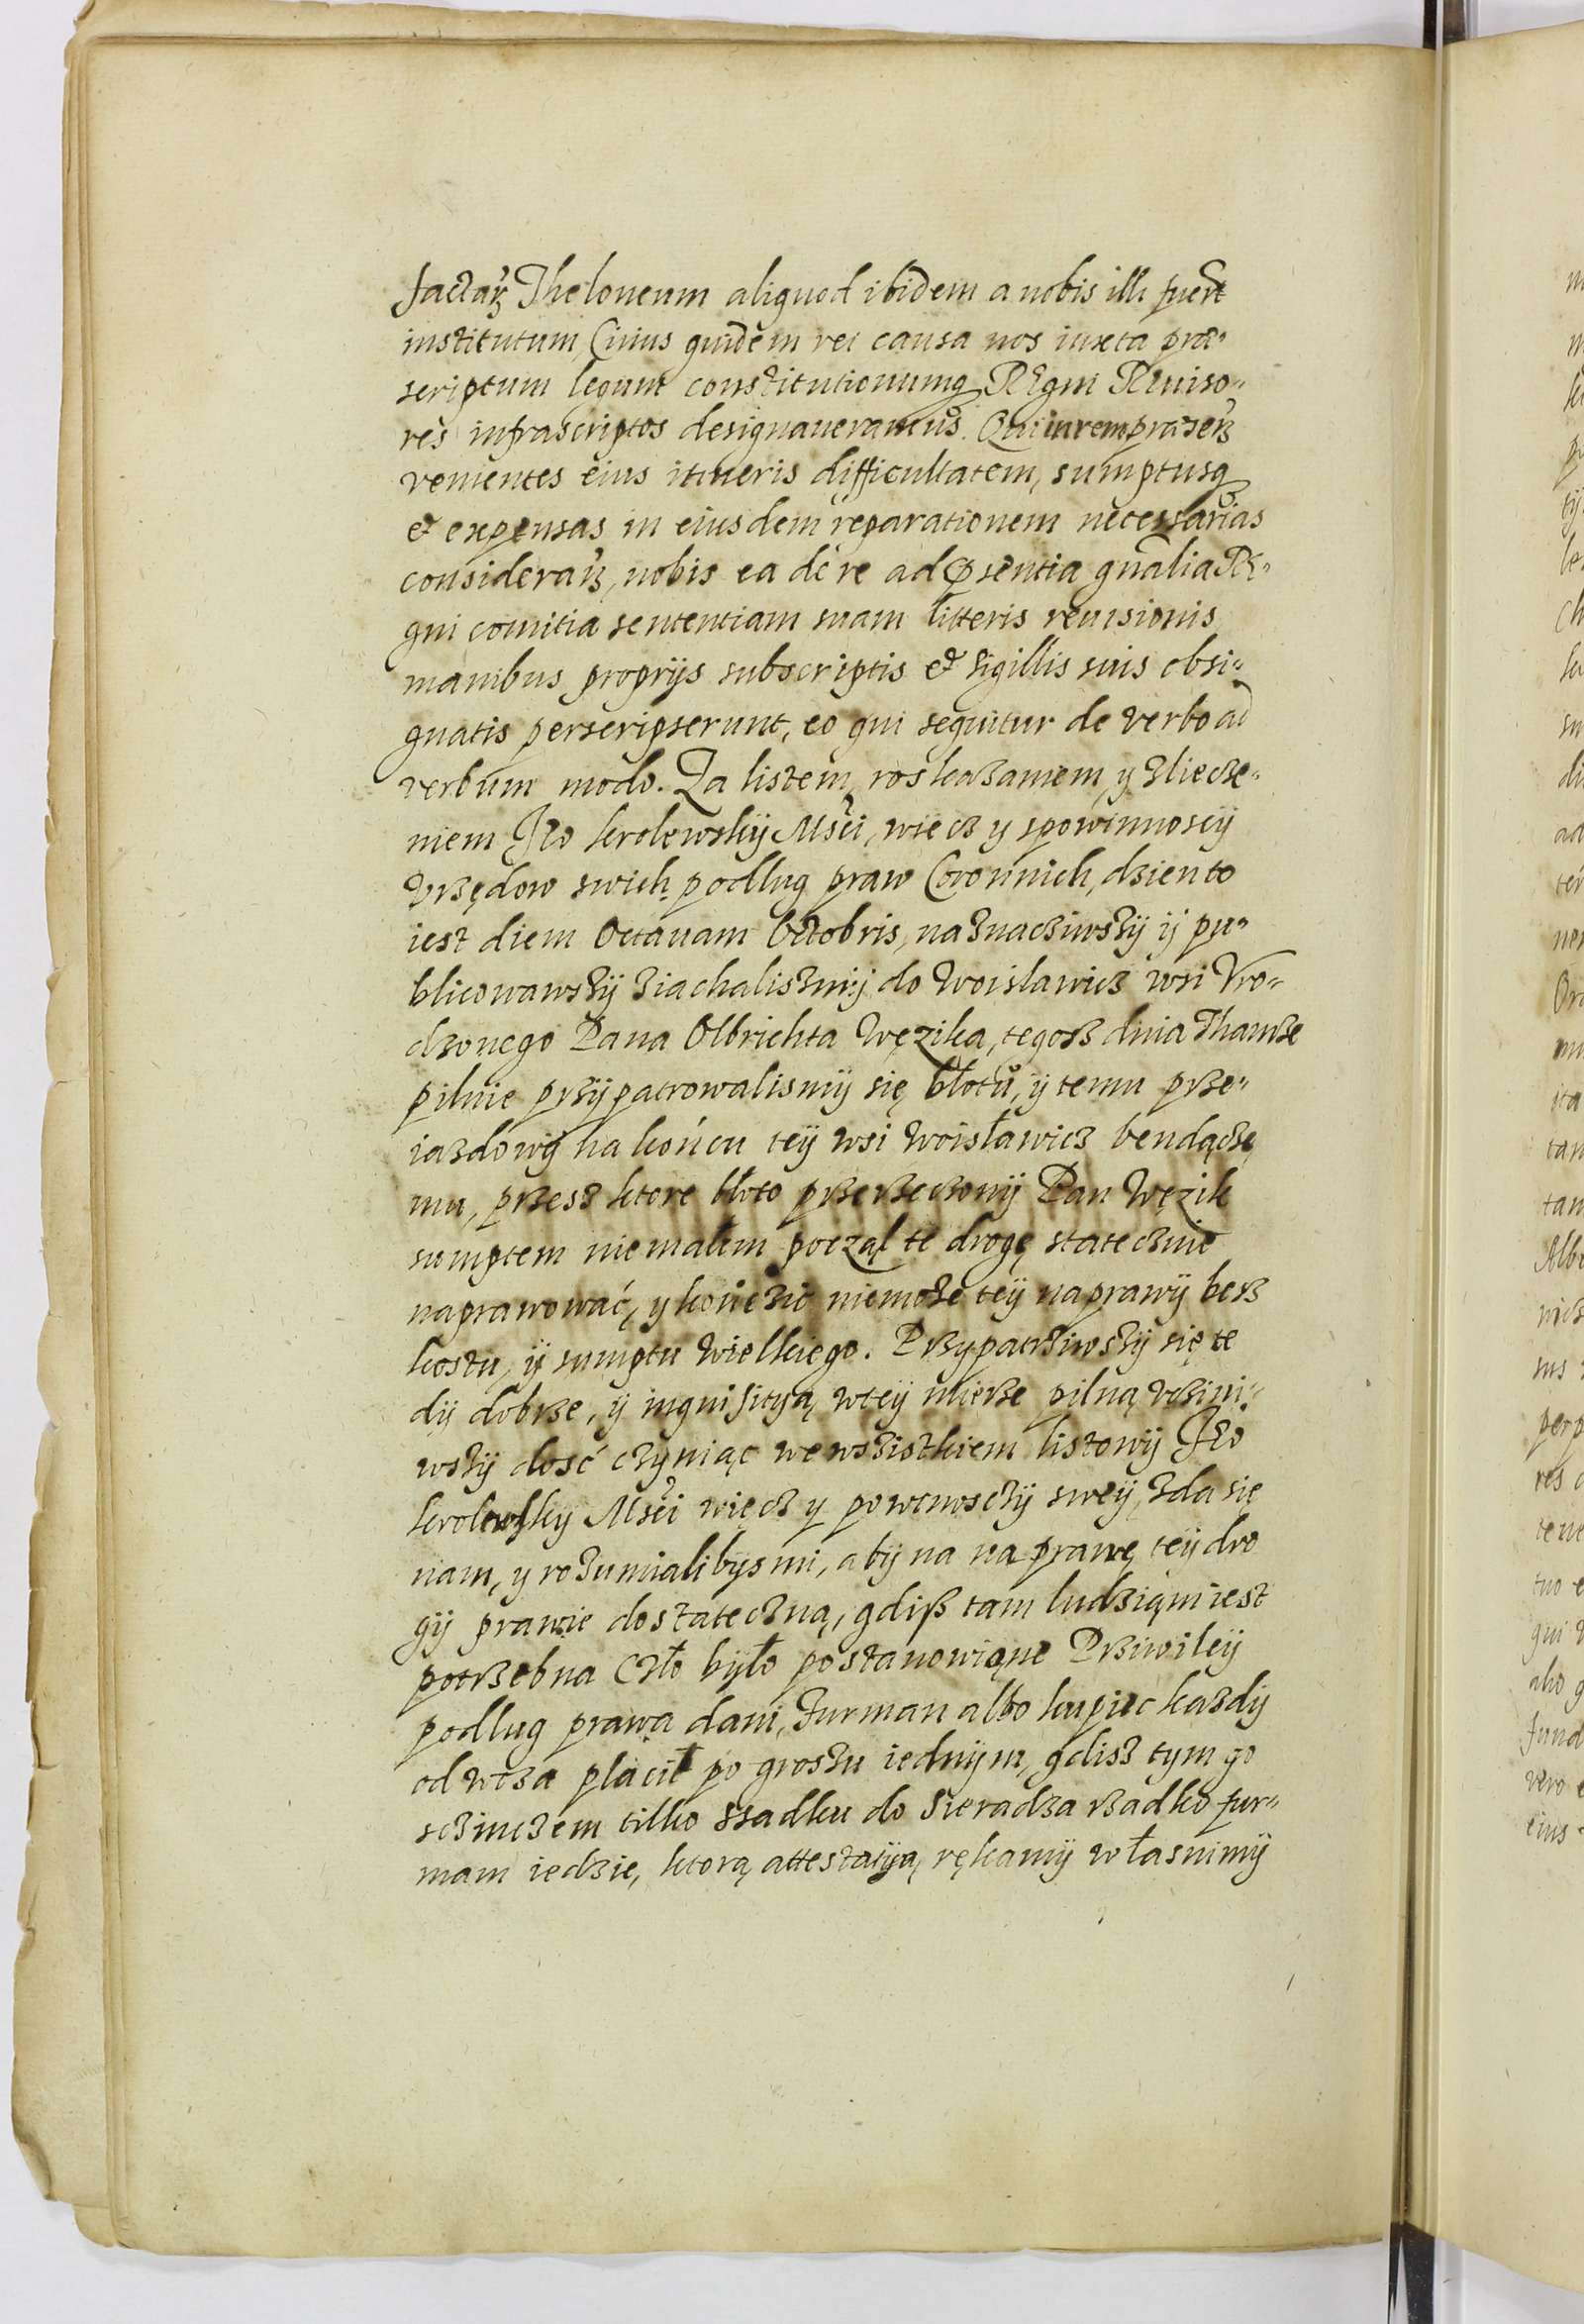 factar. Theloneum aliquod ibidem a nobis illi fuert
institutum, Cuius quidem rei causa nos iuxta præ-
scriptum legum constitutionumq Regni Reuiso-
res infrascriptos designaueramus. Qui in rem præsen
venientes eius itineris difficultatem, sumptusq
et expensas in eiusdem reparationem necessarias
considerar, nobis ea de re ad pſentia gnalia Re-
gni comitia sententiam suam litteris reuisionis
manibus proprijs subscriptis et sigillis suis obsi-
gnatis perscripserunt, eo qui sequitur de verbo ad
verbum modo. Za listem, roskazaniem, y zliecze-
niem Jeo krolewskij Msci, wiecz y spowinnoscij
Vrzędow swich, podlug praw Coronnich, dzien to
iest diem Octauam Octobris, naznacziwszij ij pu-
blicowawszij ziachaliszmij do Woislawicz wsi Vro-
dzonego Pana Olbrichta Wężika, tegosz dnia Thamze
pilnie przijpatrowalismij się błotu, ij temu prze-
iazdowij na końcu teij wsi Woisławicz bendącze
mu, przesz ktore błoto przerzeczonij Pan Wężik
sumptem niemałem począł te drogę statecznie
naprawować, y kończić niemoże teij naprawij besz
kosztu, ij sumptu Wielkiego. Przypatrziwszij się te
dij dobrze, ij inquisityą wteij mierze pilną vczini-
wszij dosć czyniąc wewszistkiem listowij Jeo
krolewskij Msci więcz y powinosczij sweij, zda się
nam, y rozumialibysmi, abij na naprawę teij dro
gij prawie dostateczną, gdisz tam ludziąm iest
potrzebna Czło było postanowiąne Prziwileij
podlug prawa dani, Furman albo kupiec kazdij
od woza płacił po groszu iednijm, gdisz tym go
sczinczem tilko Ssadku do Sieradza rzadko fur-
mam iedzie, ktorą attestatiją rękamij własnimij